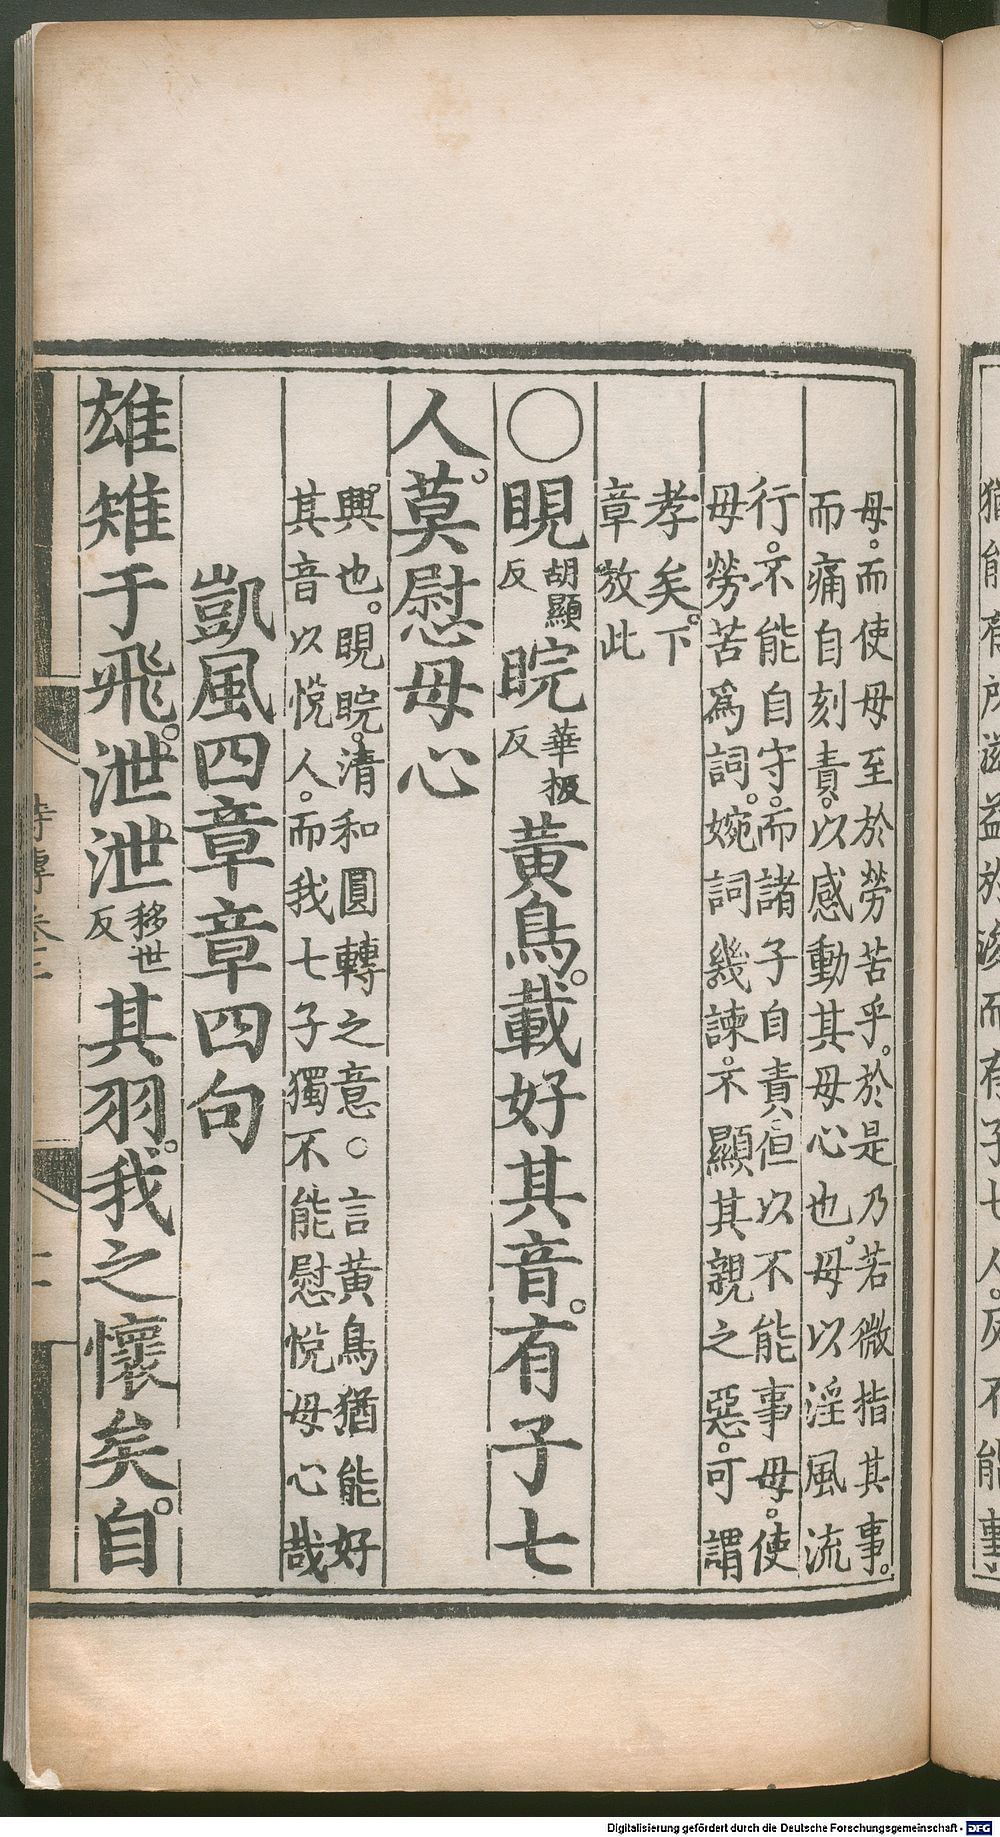 母。而使母至於勞苦乎。於是乃若微指其事。
而痛自刻責。以感動其母心也。母以淫風流
行。不能自守。而諸子自責。但以不能事母。使
母勞苦爲詞。婉詞幾諫。不顯其親之惡。可謂
孝矣。下
章放此
○睍胡顯反睆華板反黃鳥。載好其音。有子七
人。莫慰母心
興也。睍睆。清和圓轉之意。○言黃鳥猶能好
其音以悅人。而我七子獨不能慰悅母心哉
凱風四章章四句
雄雉于飛。泄泄移世反其羽。我之懷矣。自
詩傳卷二
Digitalisierung gefördert durch die Deutsche Forschungsgemeinschaft - DFG